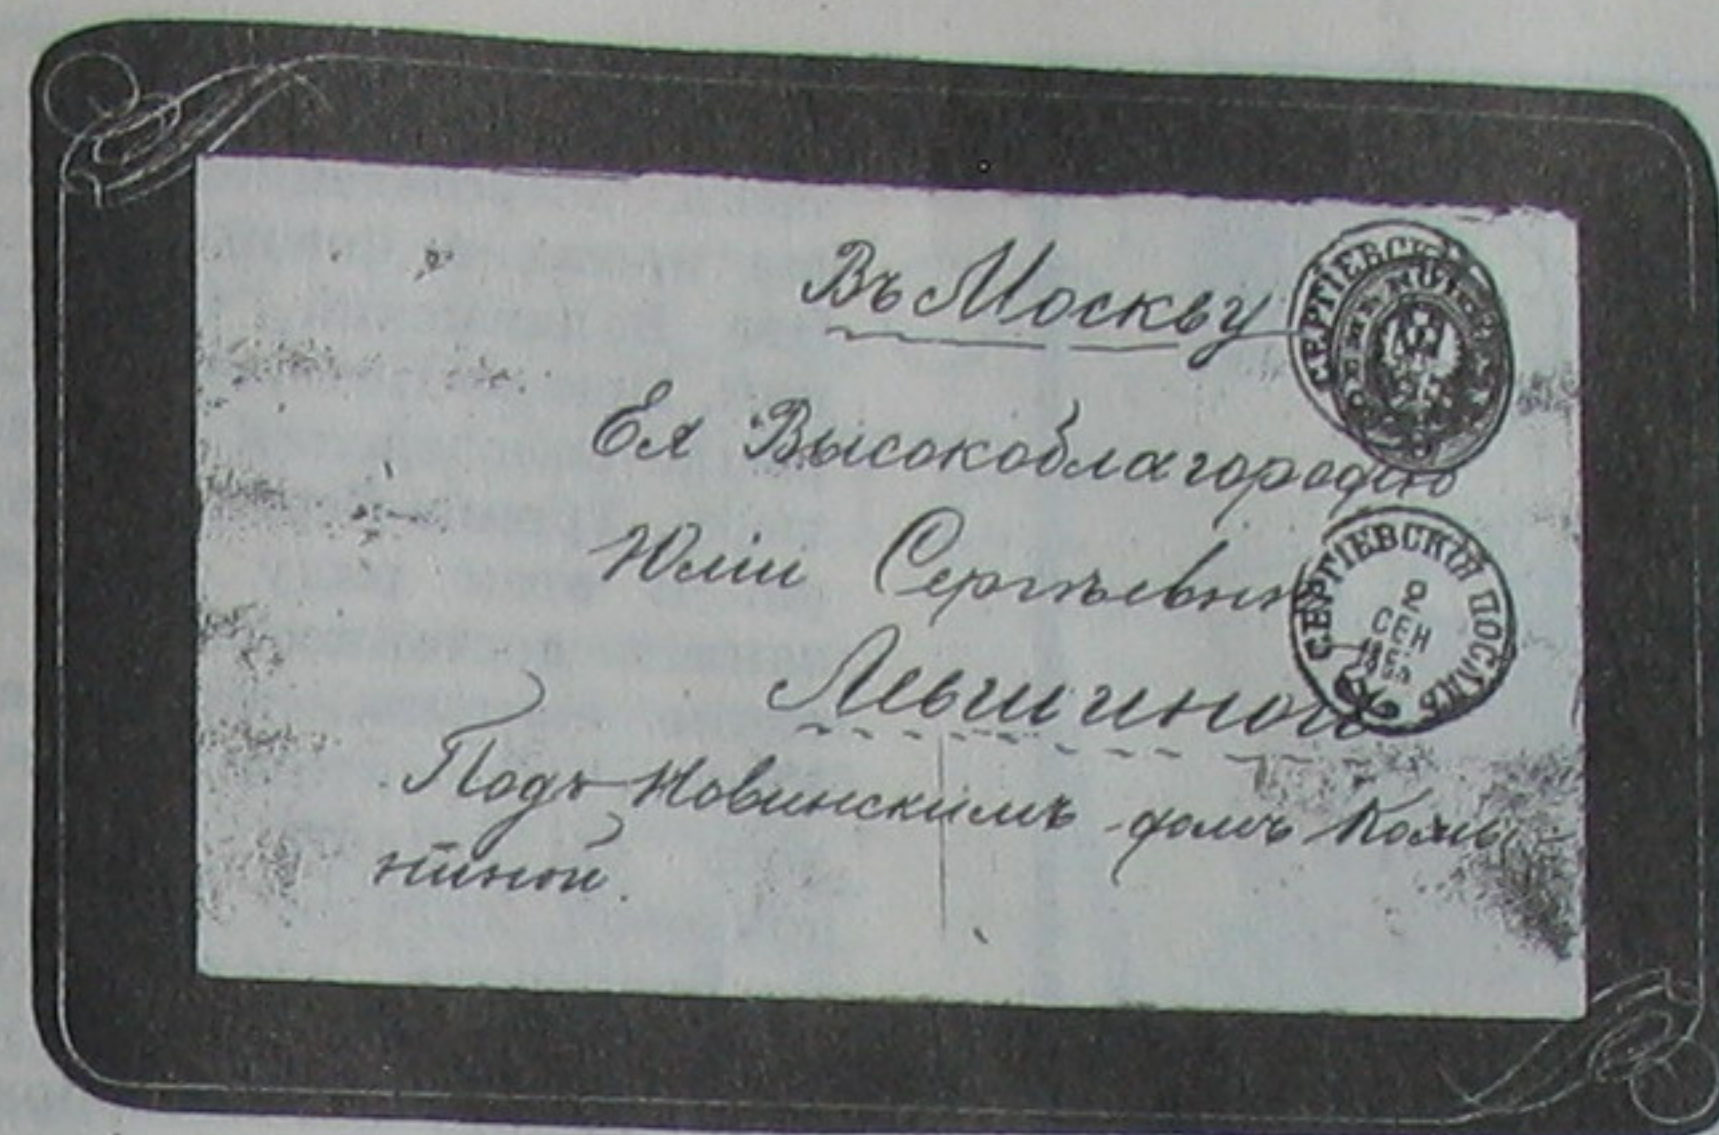 Въ Москву
Ея Высокоблагородію
Юліи Сергѣевнѣ
Левшиной
Подъ Новинскимъ домъ
ниной.
СЕРГІЕВСК
СЕРГІЕВСКІЙ ПОСАДЪ
2
СЕН